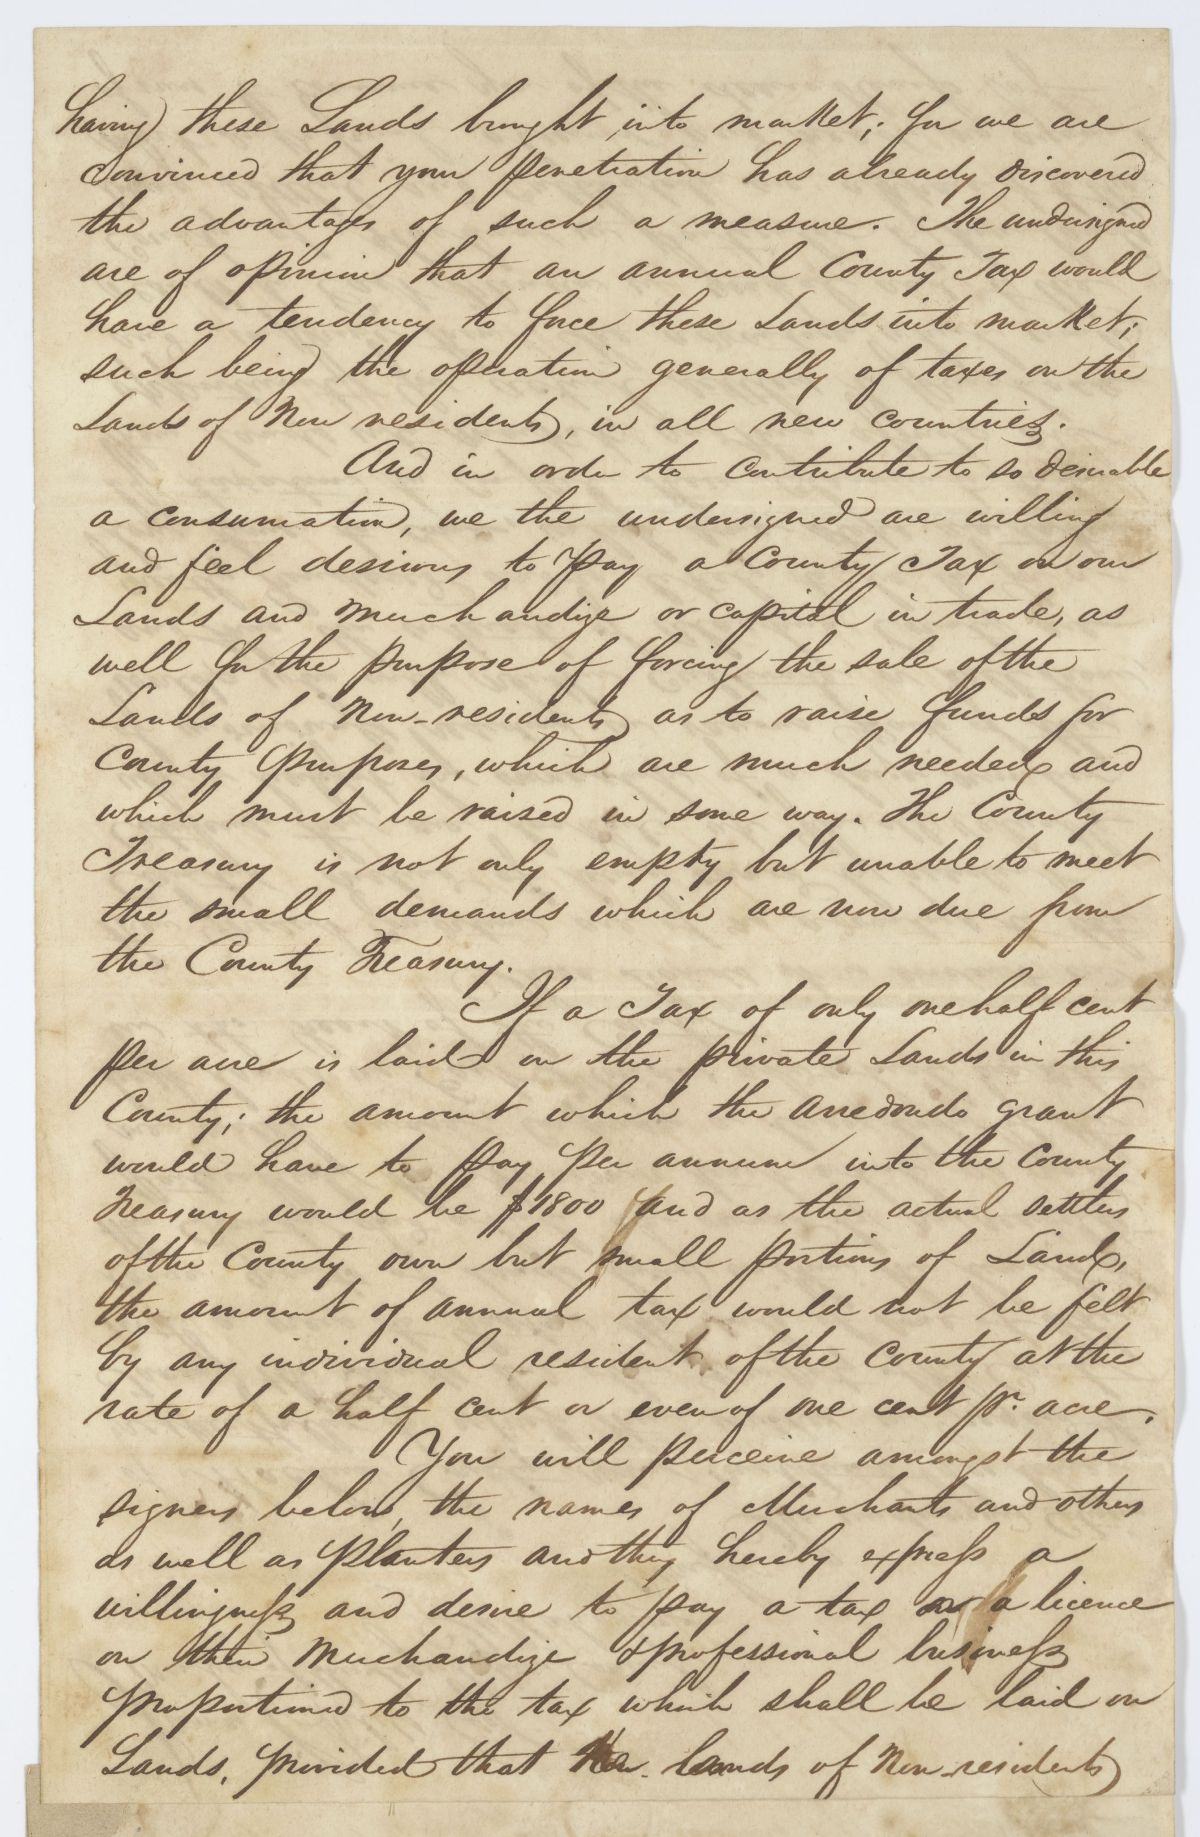 having these Lands brought into market; for we are
convinced that your penetration has already discovered
the advantages of such a measure. The undersigned
are of opinion that an annual County Tax would
have a tendency to force these Lands into market;
such being the operation generally of taxes on the
Lands of Non residents, in all new countries.
And in order to contribute to so desirable
a consumation, we the undersigned are willing
and feel desirous to pay a County Tax on our
Lands and Merchandize or capital in trade, as
well for the purpose of forcing the sale of the
Lands of Non-residents as to raise funds for
County purposes, which are much needed and
which must be raised in some way. The County
Treasury is not only empty but unable to meet
the small demands which are now due from
the County Treasury.
If a Tax of only one half cent
per acre is laid on the private Lands in this
County; the amount which the Arredondo grant
would have to pay per annum into the County
Treasury would be $1800 and as the actual settlers
of the County own but small portions of Land,
the amount of annual tax would not be felt
by any individual resident of the County at the
rate of a half cent or even of one cent pr. acre.
You will perceive amongst the
signers below, the names of Merchants and others
as well as Planters and they hereby express a
willingness and desire to pay a tax or a licence
on their Merchandize & professional business
proportioned to the tax which shall be laid on
Lands, provided that the lands of Non-residents